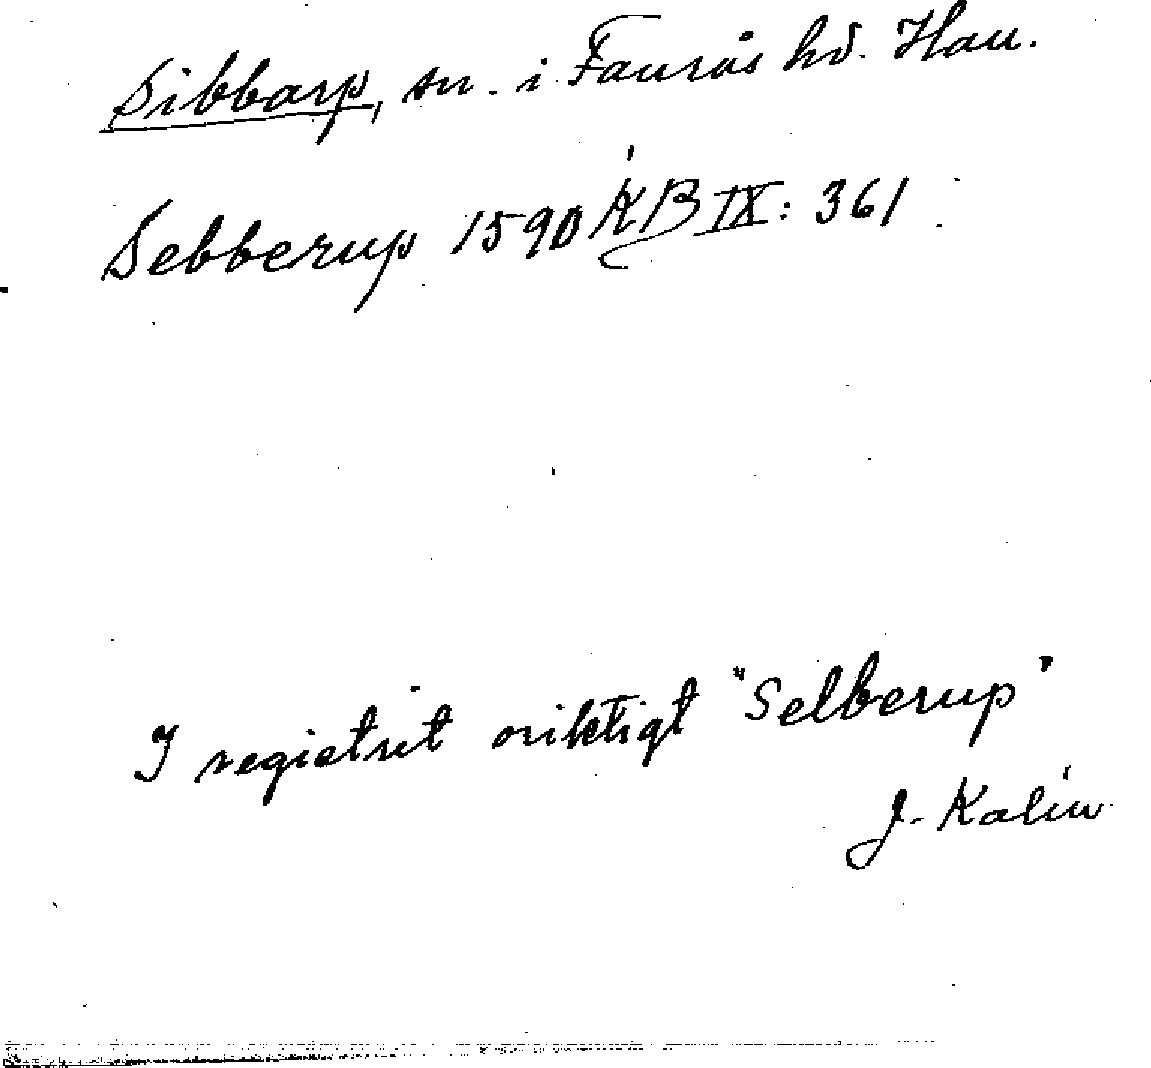 Sibbarp, sn. i Faurås hd. Hall.
Sebberup 1590 KB IX: 361
I registret oriktigt "Selberup"
J. Kalén